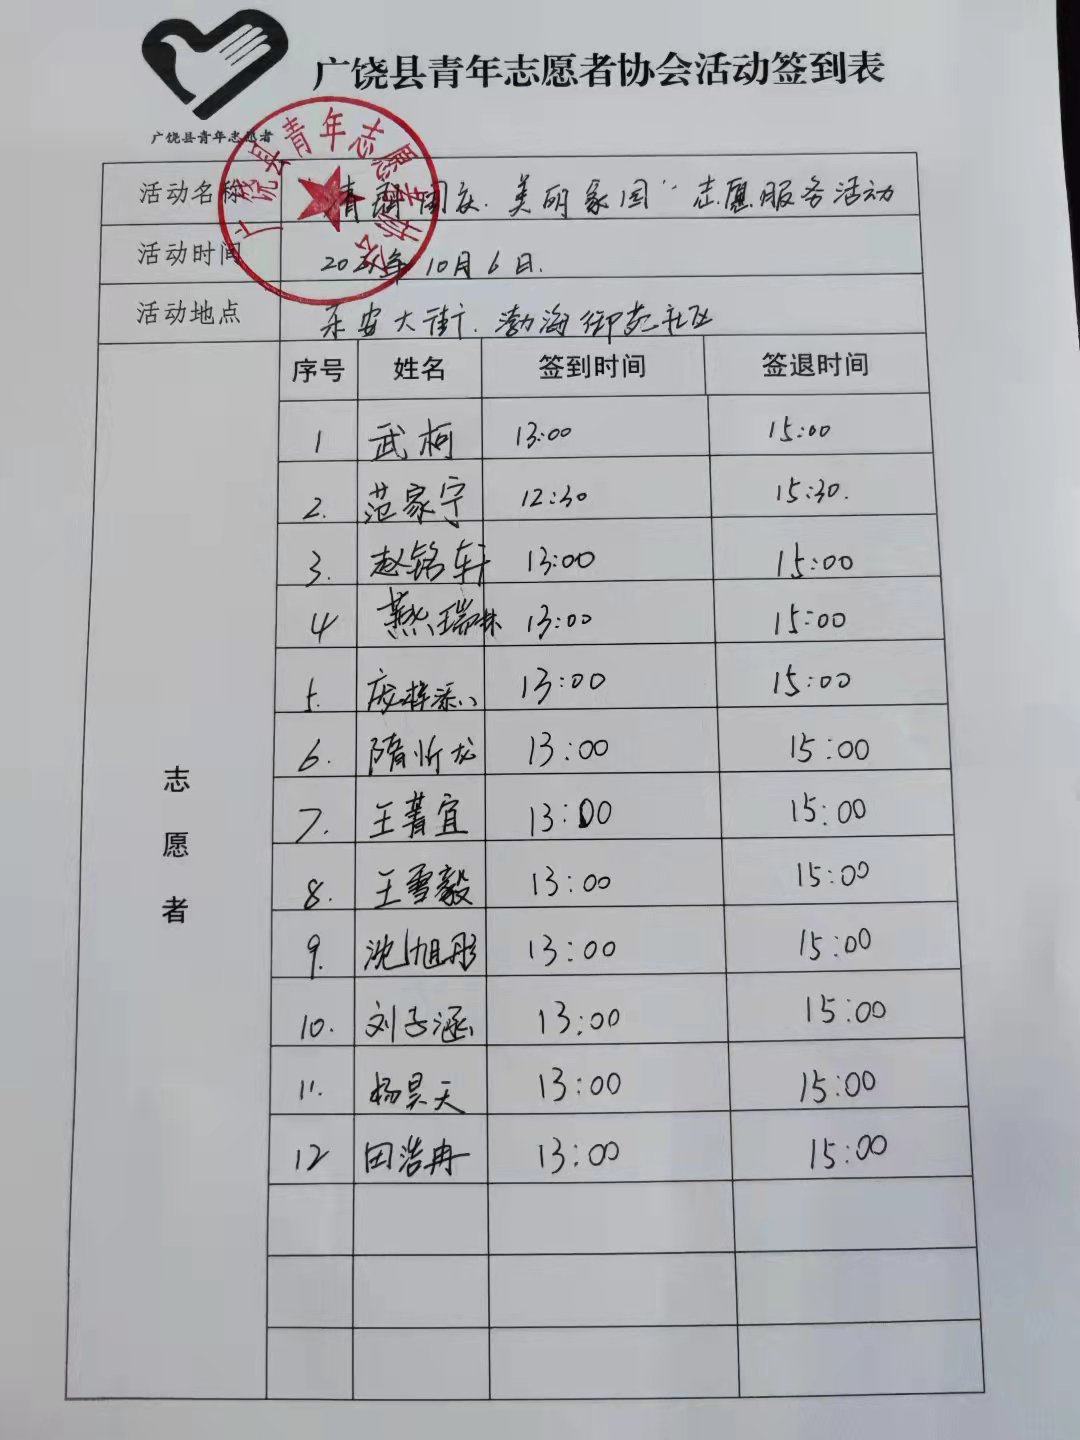 广饶县青年志愿者协会活动签到表
广饶县青年志愿者
广饶县青年志愿者协会
活动名称 "青耀国庆.美丽家园"志愿服务活动
活动时间 2021年10月6日.
活动地点 乐安大街.渤海御苑社区
序号 姓名 签到时间 签退时间
志愿者
1 武柯 13:00 15:00
2. 范家宁 12:30 15:30.
3. 赵铭轩 13:00 15:00
4 燕瑞林 13:00 15:00
5. 庞梓添 13:00 15:00
6. 隋忻龙 13:00 15:00
7. 王菁宜 13:00 15:00
8. 王雪毅 13:00 15:00
9. 沈旭彤 13:00 15:00
10. 刘子涵 13:00 15:00
11. 杨昊天 13:00 15:00
12 田浩冉 13:00 15:00